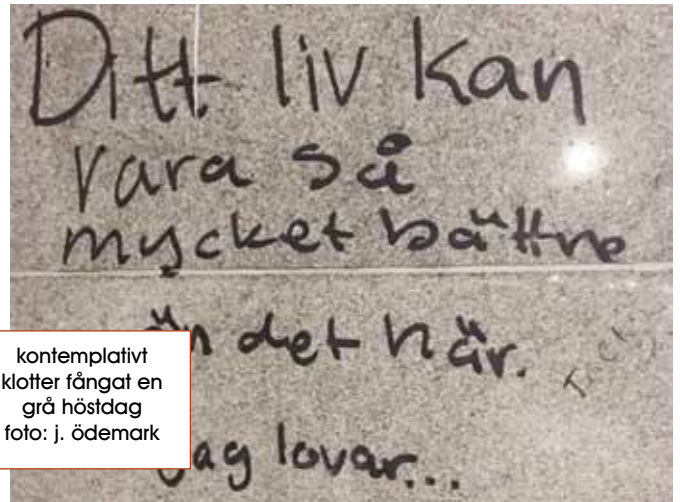 Ditt liv kan
vara så
mycket bättre
än det här.
Jag lovar...
kontemplativt
klotter fångat en
grå höstdag
foto: j. ödemark